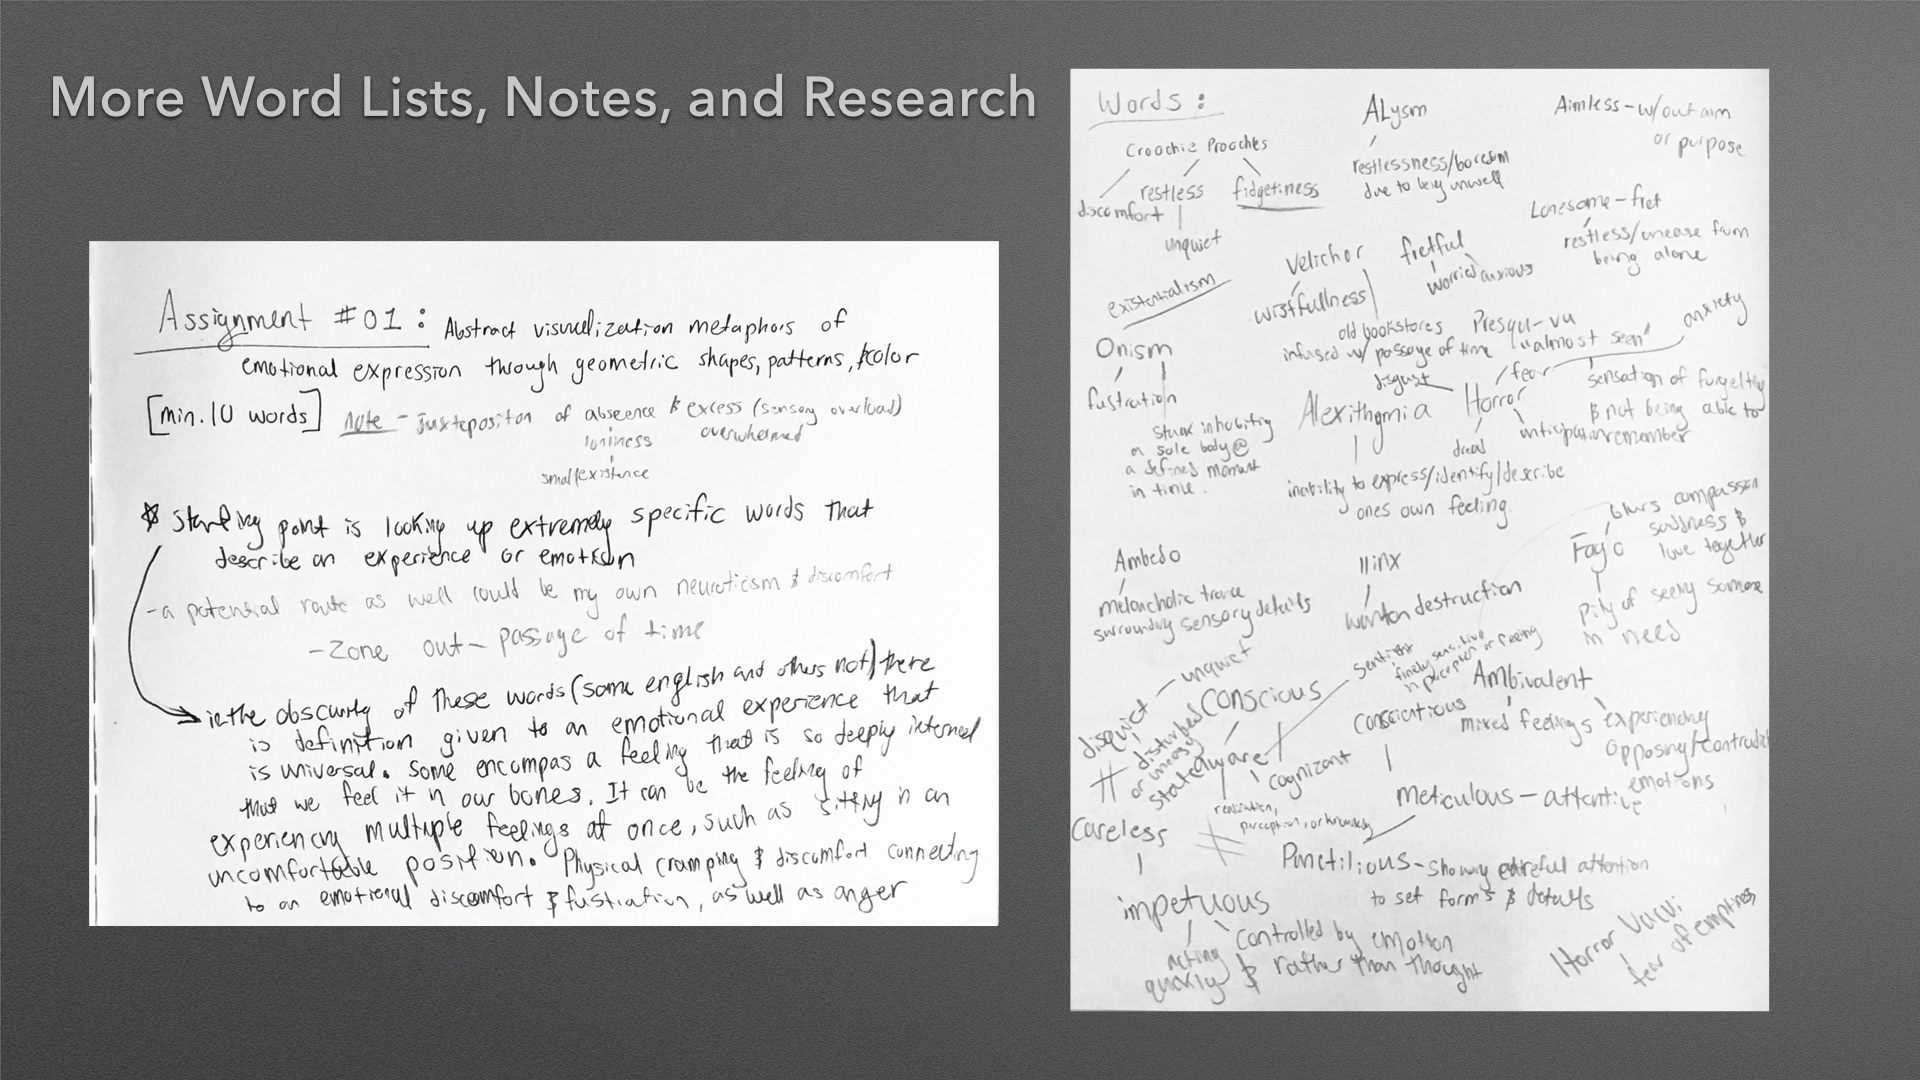 More Word Lists, Notes, and Research
Assignment #01: Abstract visualization metaphors of
emotional expression through geometric shapes, patterns, & color
[min. 10 words] note - juxtepositon of abscence & excess (sensory overload)
loniness overwhelmed
small existence
starting point is looking up extremely specific words that
describe an experience or emotion
- a potential route as well could be my own neuroticism & discomfort
- Zone out - passage of time
in the obscurity of these words (some english and others not) there
is definition given to an emotional experience that
is universal. Some encompas a feeling that is so deeply internal
that we feel it in our bones. It can be the feeling of
experiencing multiple feelings at once, such as sitting in an
uncomfortable position. Physical cramping & discomfort connecting
to an emotional discomfort & fustration, as well as anger
Words:
Croochie Proochies
discomfort
restless
fidgetiness
unquiet
ALysm
restlessness/boredom
due to being unwell
Aimless - w/out aim
or purpose
Lonesome-fret
restless/unease from
being alone
existentialism
Velichor
wistfullness
old bookstores
infused w/ passage of time
fretful
worried
anxious
Onism
fustration
stuck inhabiting
a sole body @
a defined moment
in time.
Presqu-vu
"almost seen"
sensation of forgetting
& not being able to
remember
Horror
disgust
fear
anxiety
dread
anticipation
Alexithymia
inability to express/identify/describe
ones own feeling.
Ambedo
melancholic trance
surrounding sensory details
Ilinx
wanton destruction
Fago
blurs compassion
saddness &
love together
pity of seeing someone
in need
disquiet - unquiet
disturbed
or uneasy
state
Conscious
aware
cognizant
realization,
perception, or knowledge
sentient
finely sensitive
in perception or feeling
Ambivalent
mixed feelings
experiencing
opposing/contradict
emotions
Conscientious
Meticulous - attentive
Careless
impetuous
acting
quickly
& controlled by emotion
rather than thought
Punctilious - showing careful attention
to set forms & details
Horror Vacui
fear of emptiness